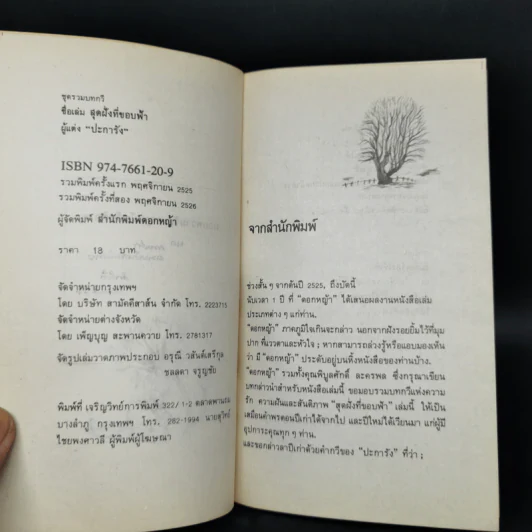 ชุดรวมบทกวี
ชื่อเล่ม สุดฝั่งที่ขอบฟ้า
ผู้แต่ง "ปะการัง"
ISBN 974-7661-20-9
รวมพิมพ์ครั้งแรก พฤศจิกายน 2525
รวมพิมพ์ครั้งที่สอง พฤศจิกายน 2526
ผู้จัดพิมพ์ สำนักพิมพ์ดอกหญ้า
ราคา 18 บาท
จัดจำหน่ายกรุงเทพฯ
โดย บริษัท สามัคคีสาส์น จำกัด โทร. 2223715
จัดจำหน่ายต่างจังหวัด
โดย เพ็ญบุญ สะพานควาย โทร. 2781317
จัดรูปเล่มวาดภาพประกอบ อรุณี วสันต์เสรีกุล
ชลลดา จรูญชัย
พิมพ์ที่ เจริญวิทย์การพิมพ์ 322/1-2 ตลาดพานถม
บางลำภู กรุงเทพฯ โทร. 282-1994 นายสุวิทย์
ไชยพงศาวลี ผู้พิมพ์ผู้โฆษณา
จากสำนักพิมพ์
ช่วงสั้น ๆ จากต้นปี 2525, ถึงบัดนี้
นับเวลา 1 ปี ที่ "ดอกหญ้า" ได้เสนอผลงานหนังสือเล่ม
ประเภทต่าง ๆ แก่ท่าน.
"ดอกหญ้า" ภาคภูมิใจเกินจะกล่าว นอกจากฝังรอยยิ้มไว้ที่มุม
ปาก ที่แววตาและหัวใจ ; หากสามารถล่วงรู้หรือแอบมองเห็น
ว่า มี "ดอกหญ้า" ประดับอยู่บนหิ้งหนังสือของท่านบ้าง.
"ดอกหญ้า" รวมทั้งคุณพิบูลศักดิ์ ละครพล ซึ่งกรุณาเขียน
บทกล่าวนำสำหรับหนังสือเล่มนี้ ขอมอบรวมบทกวีแห่งความ
รัก ความฝันและสันติภาพ "สุดฝั่งที่ขอบฟ้า" เล่มนี้ ให้เป็น
เสมือนคำพรตอนปีเก่าได้จากไป และปีใหม่ได้เวียนมา แก่ผู้มี
อุปการะคุณทุก ๆ ท่าน.
และขอกล่าวลาปีเก่าด้วยคำกวีของ "ปะการัง" ที่ว่า ;